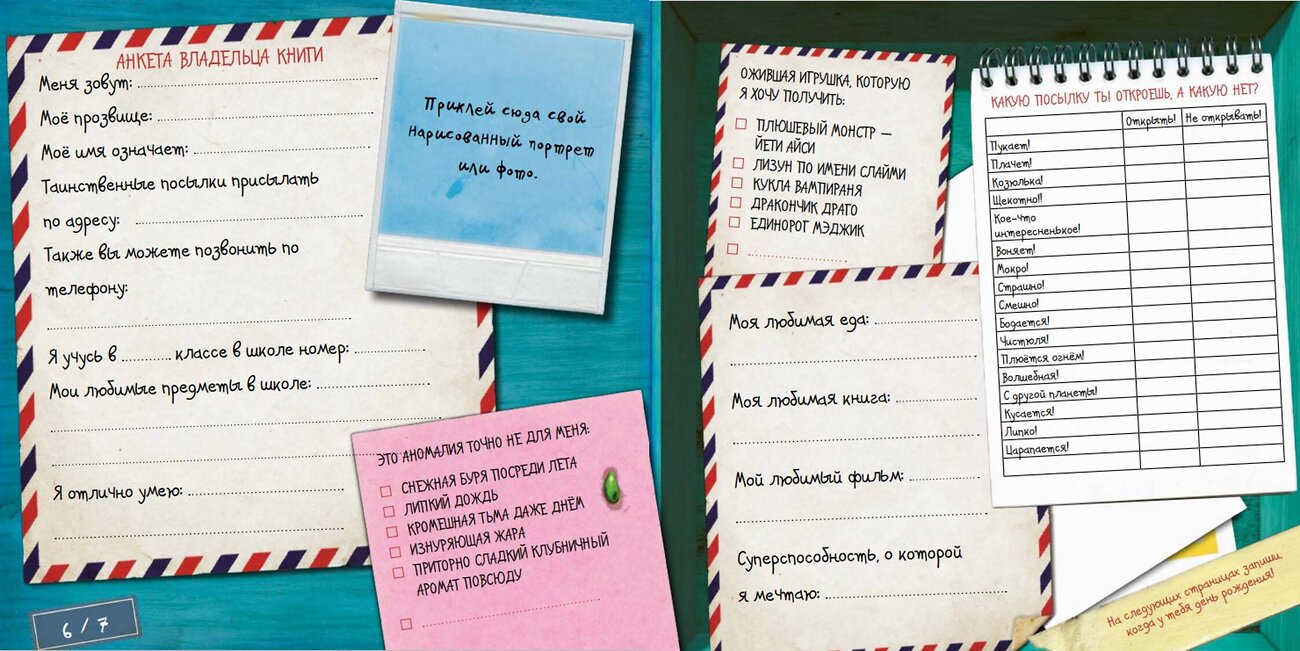 АНКЕТА ВЛАДЕЛЬЦА КНИГИ
Меня зовут:
Моё прозвище:
Моё имя означает:
Таинственные посылки присылать
по адресу:
Также вы можете позвонить по
телефону:
Я учусь в классе в школе номер:
Мои любимые предметы в школе:
Я отлично умею:
6 / 7
Приклей сюда свой
нарисованный портрет
или фото.
ЭТО АНОМАЛИЯ ТОЧНО НЕ ДЛЯ МЕНЯ:
СНЕЖНАЯ БУРЯ ПОСРЕДИ ЛЕТА
ЛИПКИЙ ДОЖДЬ
КРОМЕШНАЯ ТЬМА ДАЖЕ ДНЁМ
ИЗНУРЯЮЩАЯ ЖАРА
ПРИТОРНО СЛАДКИЙ КЛУБНИЧНЫЙ
АРОМАТ ПОВСЮДУ
ОЖИВШАЯ ИГРУШКА, КОТОРУЮ
Я ХОЧУ ПОЛУЧИТЬ:
ПЛЮШЕВЫЙ МОНСТР —
ЙЕТИ АЙСИ
ЛИЗУН ПО ИМЕНИ СЛАЙМИ
КУКЛА ВАМПИРАНЯ
ДРАКОНЧИК ДРАГО
ЕДИНОРОГ МЭДЖИК
Моя любимая еда:
Моя любимая книга:
Мой любимый фильм:
Суперспособность, о которой
я мечтаю:
КАКУЮ ПОСЫЛКУ ТЫ ОТКРОЕШЬ, А КАКУЮ НЕТ?
Открыть! Не открывать!
Пукает!
Плачет!
Козюлька!
Щекотно!!
Кое-что
интересненькое!
Воняет!
Мокро!
Страшно!
Смешно!
Бодается!
Чистюля!
Плюётся огнём!
Волшебная!
С другой планеты!
Кусается!
Липко!
Царапается!
На следующих страницах запиши,
когда у тебя день рождения!